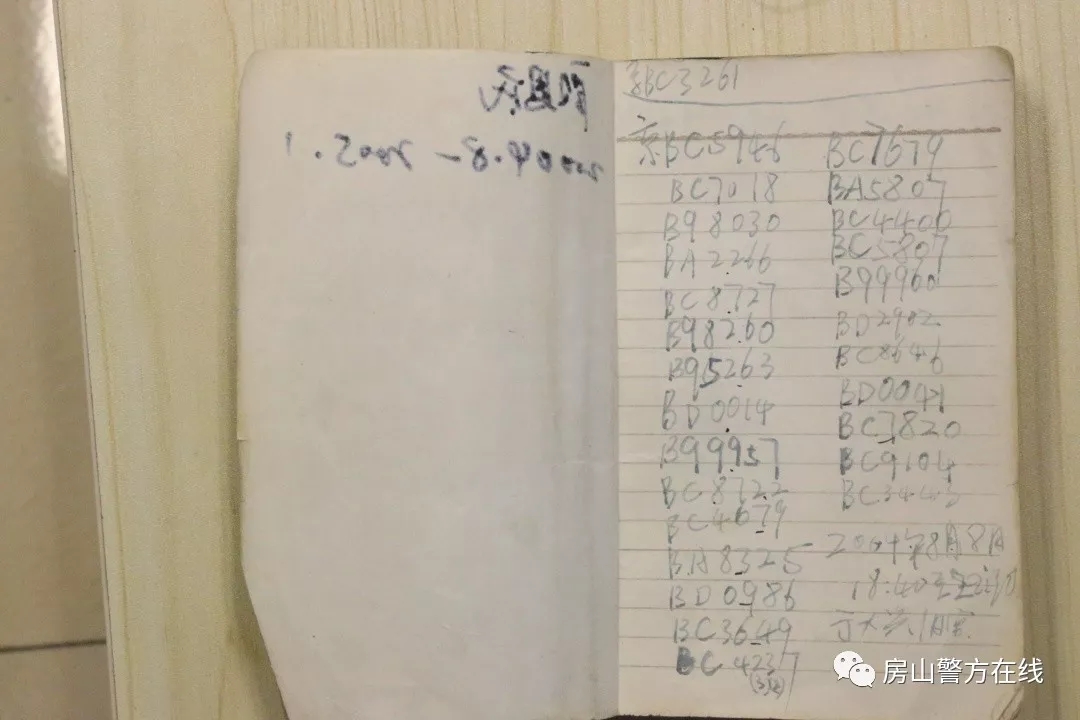 京BC3261
京BC5946
BC7018
B98030
BA2266
BC8727
B98260
B95263
BD0014
B99957
BC8722
BC4679
BA8325
BD0986
BC3649
BC4237
BC7679
BA5807
BC4400
BC5807
B99960
BD2982
BC8646
BD0041
BC7820
BC9104
BC3443
2004年8月8日
18:40
房山警方在线